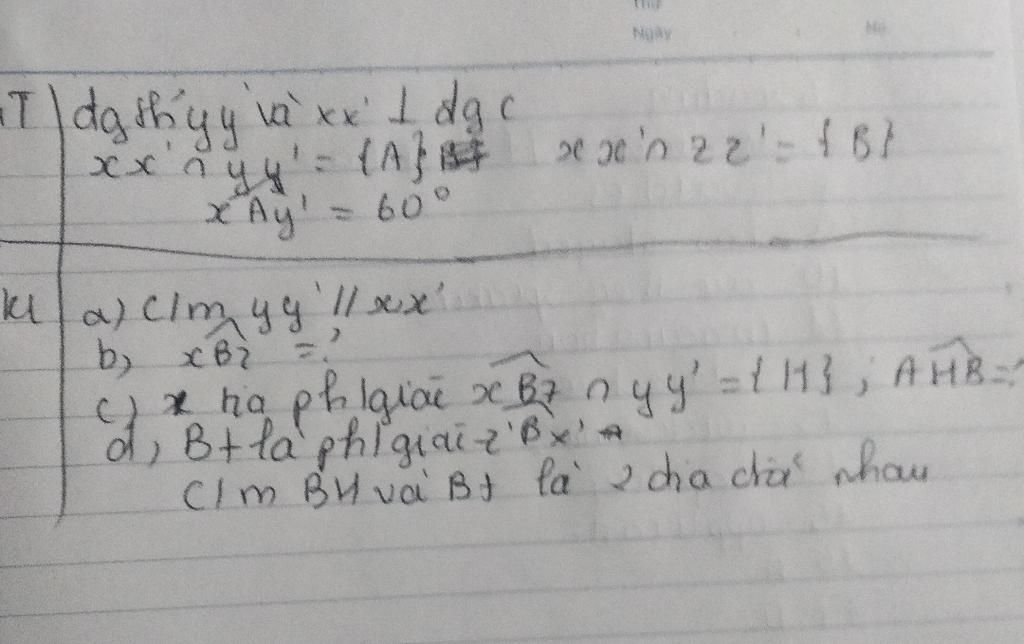 Thứ
Ngày No
GT đg th' yy' và xx' ⊥ đg c
xx' ∩ yy' = {A} xx' ∩ zz' = {B}
xAy' = 60°
KL a) C/m yy' // xx'
b) xBz = ?
c) tia ph/giác xBz ∩ yy' = {H}; AHB = ?
d) Bt là ph/giác z'Bx'
C/m BH và Bt là 2 tia đối nhau